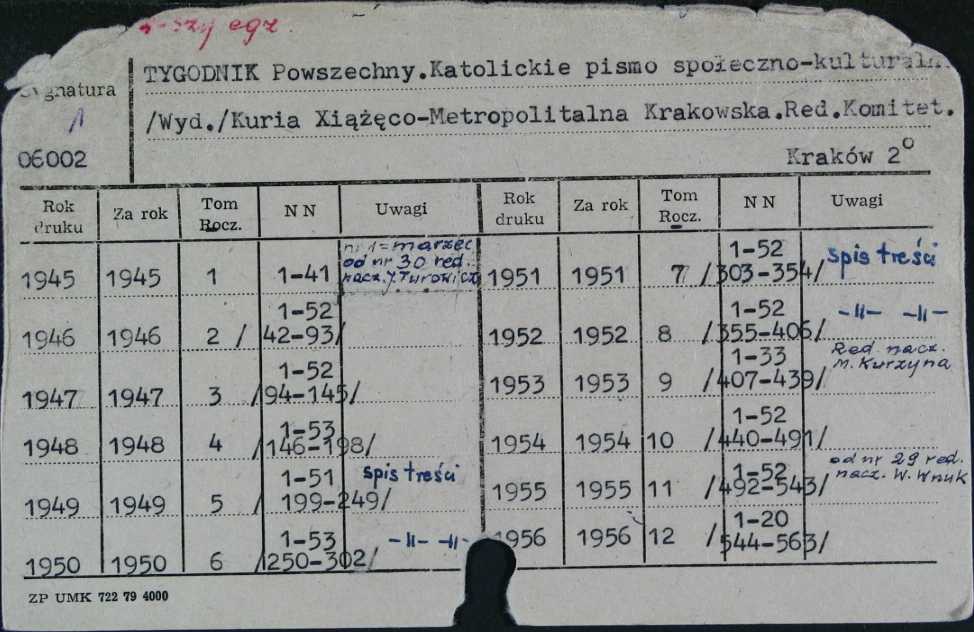 egz.
Sygnatura
TYGODNIK Powszechny.Katolickie pismo społeczno-kulturaln
1
/Wyd./Kuria Xiążęco-Metropolitalna Krakowska.Red.Komitet.
06002
Kraków 2°
Rok druku Za rok Tom Rocz. N N Uwagi Rok druku Za rok Tom Rocz. N N Uwagi
1945 1945 1 1-41 nr 1=marzec od nr 30 red. nacz. J. Turowicz
1946 1946 2 1-52 /42-93/
1947 1947 3 1-52 /94-145/
1948 1948 4 1-53 /146-198/
1949 1949 5 1-51 /199-249/ spis treści
1950 1950 6 1-53 /250-302/ -11- -11-
1951 1951 7 1-52 /303-354/ spis treści
1952 1952 8 1-52 /355-406/ -11- -11-
1953 1953 9 1-33 /407-439/ Red nacz. M. Kurzyna
1954 1954 10 1-52 /440-491/
1955 1955 11 1-52 /492-543/ od nr 29 red. nacz. W. Wnuk
1956 1956 12 1-20 /544-563/
ZP UMK 722 79 4000